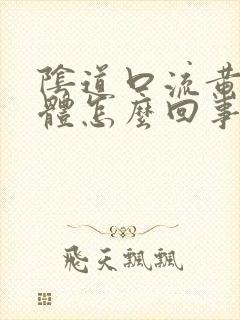 陰道口流黃
體怎麼回事
飛天飄飄